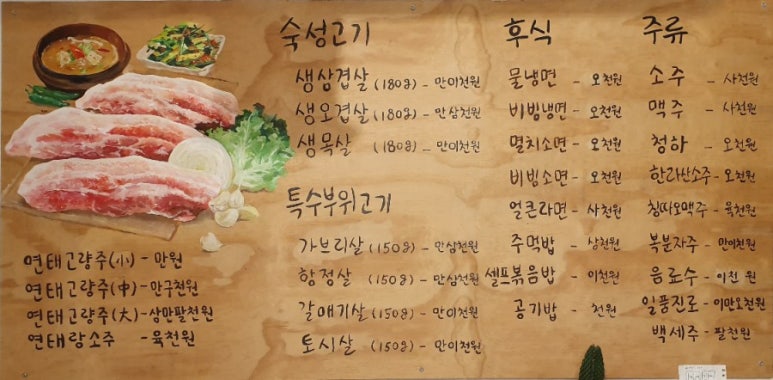 숙성고기
생삼겹살 (180g) - 만이천원
생오겹살 (180g) - 만삼천원
생목살 (180g) - 만이천원
특수부위고기
가브리살 (150g) - 만삼천원
항정살 (150g) - 만삼천원
갈매기살 (150g) - 만이천원
토시살 (150g) - 만이천원
후식
물냉면 - 오천원
비빔냉면 - 오천원
멸치소면 - 오천원
비빔소면 - 오천원
얼큰라면 - 사천원
주먹밥 - 삼천원
셀프볶음밥 - 이천원
공기밥 - 천원
주류
소주 - 사천원
맥주 - 사천원
청하 - 오천원
한라산소주 - 오천원
칭따오맥주 - 육천원
복분자주 - 만이천원
음료수 - 이천 원
일품진로 - 이만오천원
백세주 - 팔천원
연태고량주(小) - 만원
연태고량주(中) - 만구천원
연태고량주(大) - 삼만팔천원
연태랑소주 - 육천원